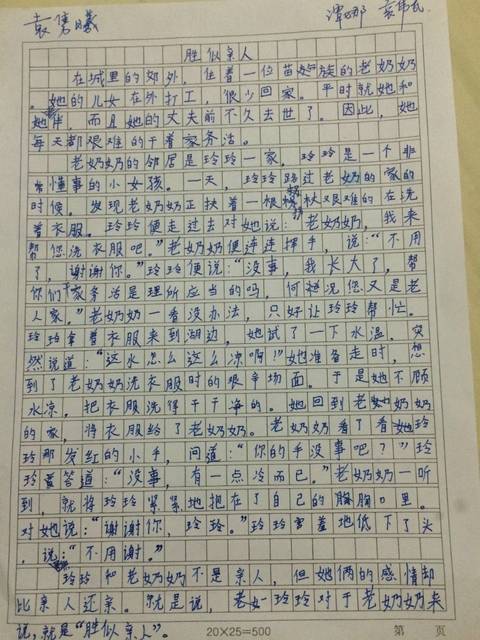 袁隽曦 谭娜 袁伟民
胜似亲人
在城里的郊外，住着一位苗族的老奶奶
。她的儿女在外打工，很少回家。平时就她和
她老伴 而且她的丈夫前不久去世了。因此，她
每天都艰难的干着家务活。
老奶奶的邻居是玲玲一家，玲玲是一个非
常懂事的小女孩。一天，玲玲路过老奶奶的家的
时候。发现老奶奶正扶着一根拐杖艰难的在洗
着衣服。玲玲便走过去对她说："老奶奶，我来
帮您洗衣服吧。"老奶奶便连连挥手，说："不用
了，谢谢你。"玲玲便说："没事，我长大了，帮
你们干家务活是理所应当的吗，何况您又是老
人家。"老奶奶一看没办法，只好让玲玲帮忙。
玲玲拿着衣服来到湖边，她试了一下水温。突
然说道："这水怎么这么凉啊！"她准备走时，想
到了老奶奶洗衣服时的艰辛场面。于是她不顾
水凉，把衣服洗得干干净的。她回到老奶奶
的家，将衣服给了老奶奶。老奶奶看了看玲
玲那发红的小手，问道："你的手没事吧？"玲
玲答道："没事，有一点冷而已。"老奶奶一听
到，就将玲玲紧紧地抱在了自己的胸口里。
对她说："谢谢你，玲玲。"玲玲害羞地低下了头
，说："不用谢。"
玲玲和老奶奶不是亲人，但她俩的感情却
比亲人还亲。就是说，玲玲对于老奶奶来
说，就是"胜似亲人"。
20×25=500 第 页